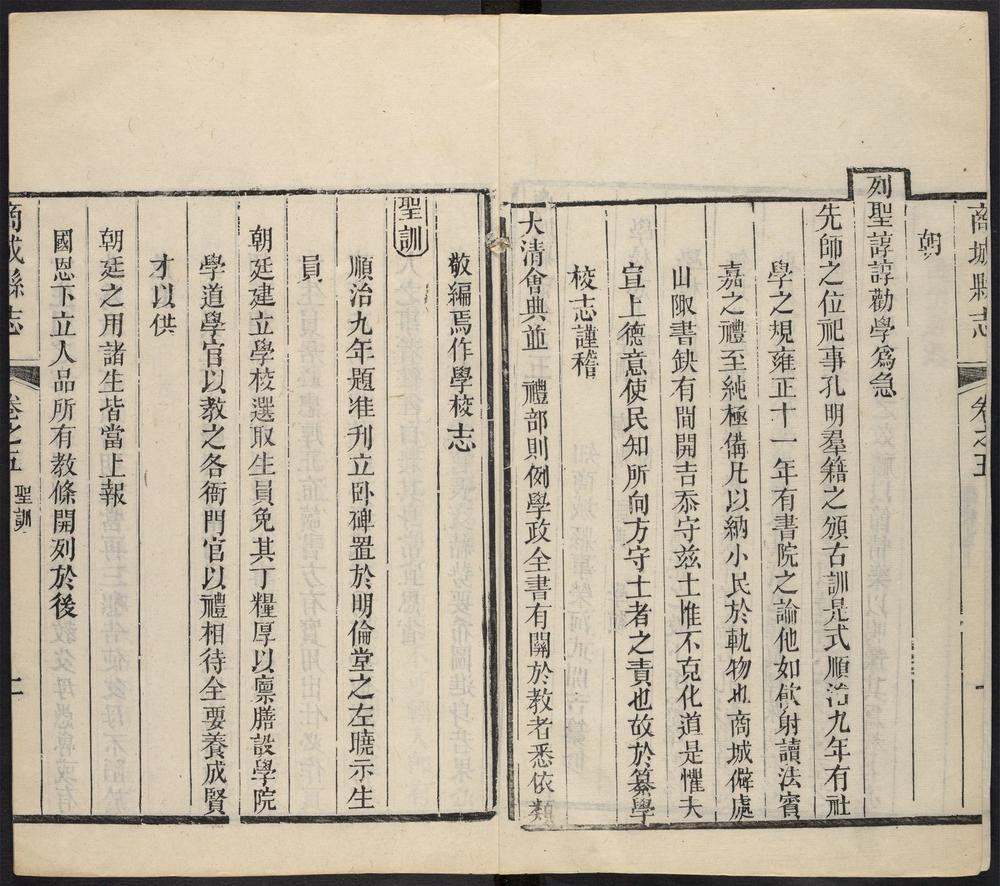 商城縣志 卷之五
朝
列聖諄諄勸學爲急
先師之位祀事孔明羣籍之頒古訓是式順治九年有社
學之規雍正十一年有書院之諭他如飮射讀法賓
嘉之禮至純極備凡以納小民於軌物也商城僻處
山陬書缺有間開吉忝守兹土惟不克化道是懼夫
宣上德意使民知所向方守土者之責也故於纂學
校志謹稽
大清會典並 禮部則例學政全書有關於教者悉依類
敬編焉作學校志
聖訓
順治九年題准刋立卧碑置於明倫堂之左曉示生
員
朝廷建立學校選取生員免其丁糧厚以廩膳設學院
學道學官以教之各衙門官以禮相待全要養成賢
才以供
朝廷之用諸生皆當上報
國恩下立人品所有教條開列於後
商城縣志 卷之五 聖訓